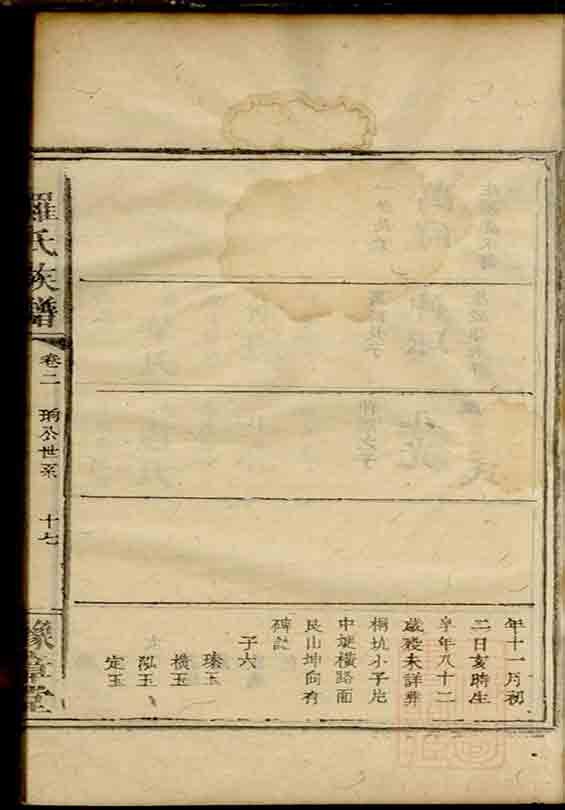 年十一月初
二日亥時生
享年八十二
歲歿未詳葬
桐坑小子坑
中埂橫路面
艮山坤向有
碑誌
子六
瑧玉
橫玉
泓玉
定玉
羅氏族譜
卷二
公世系
十七
豫章堂